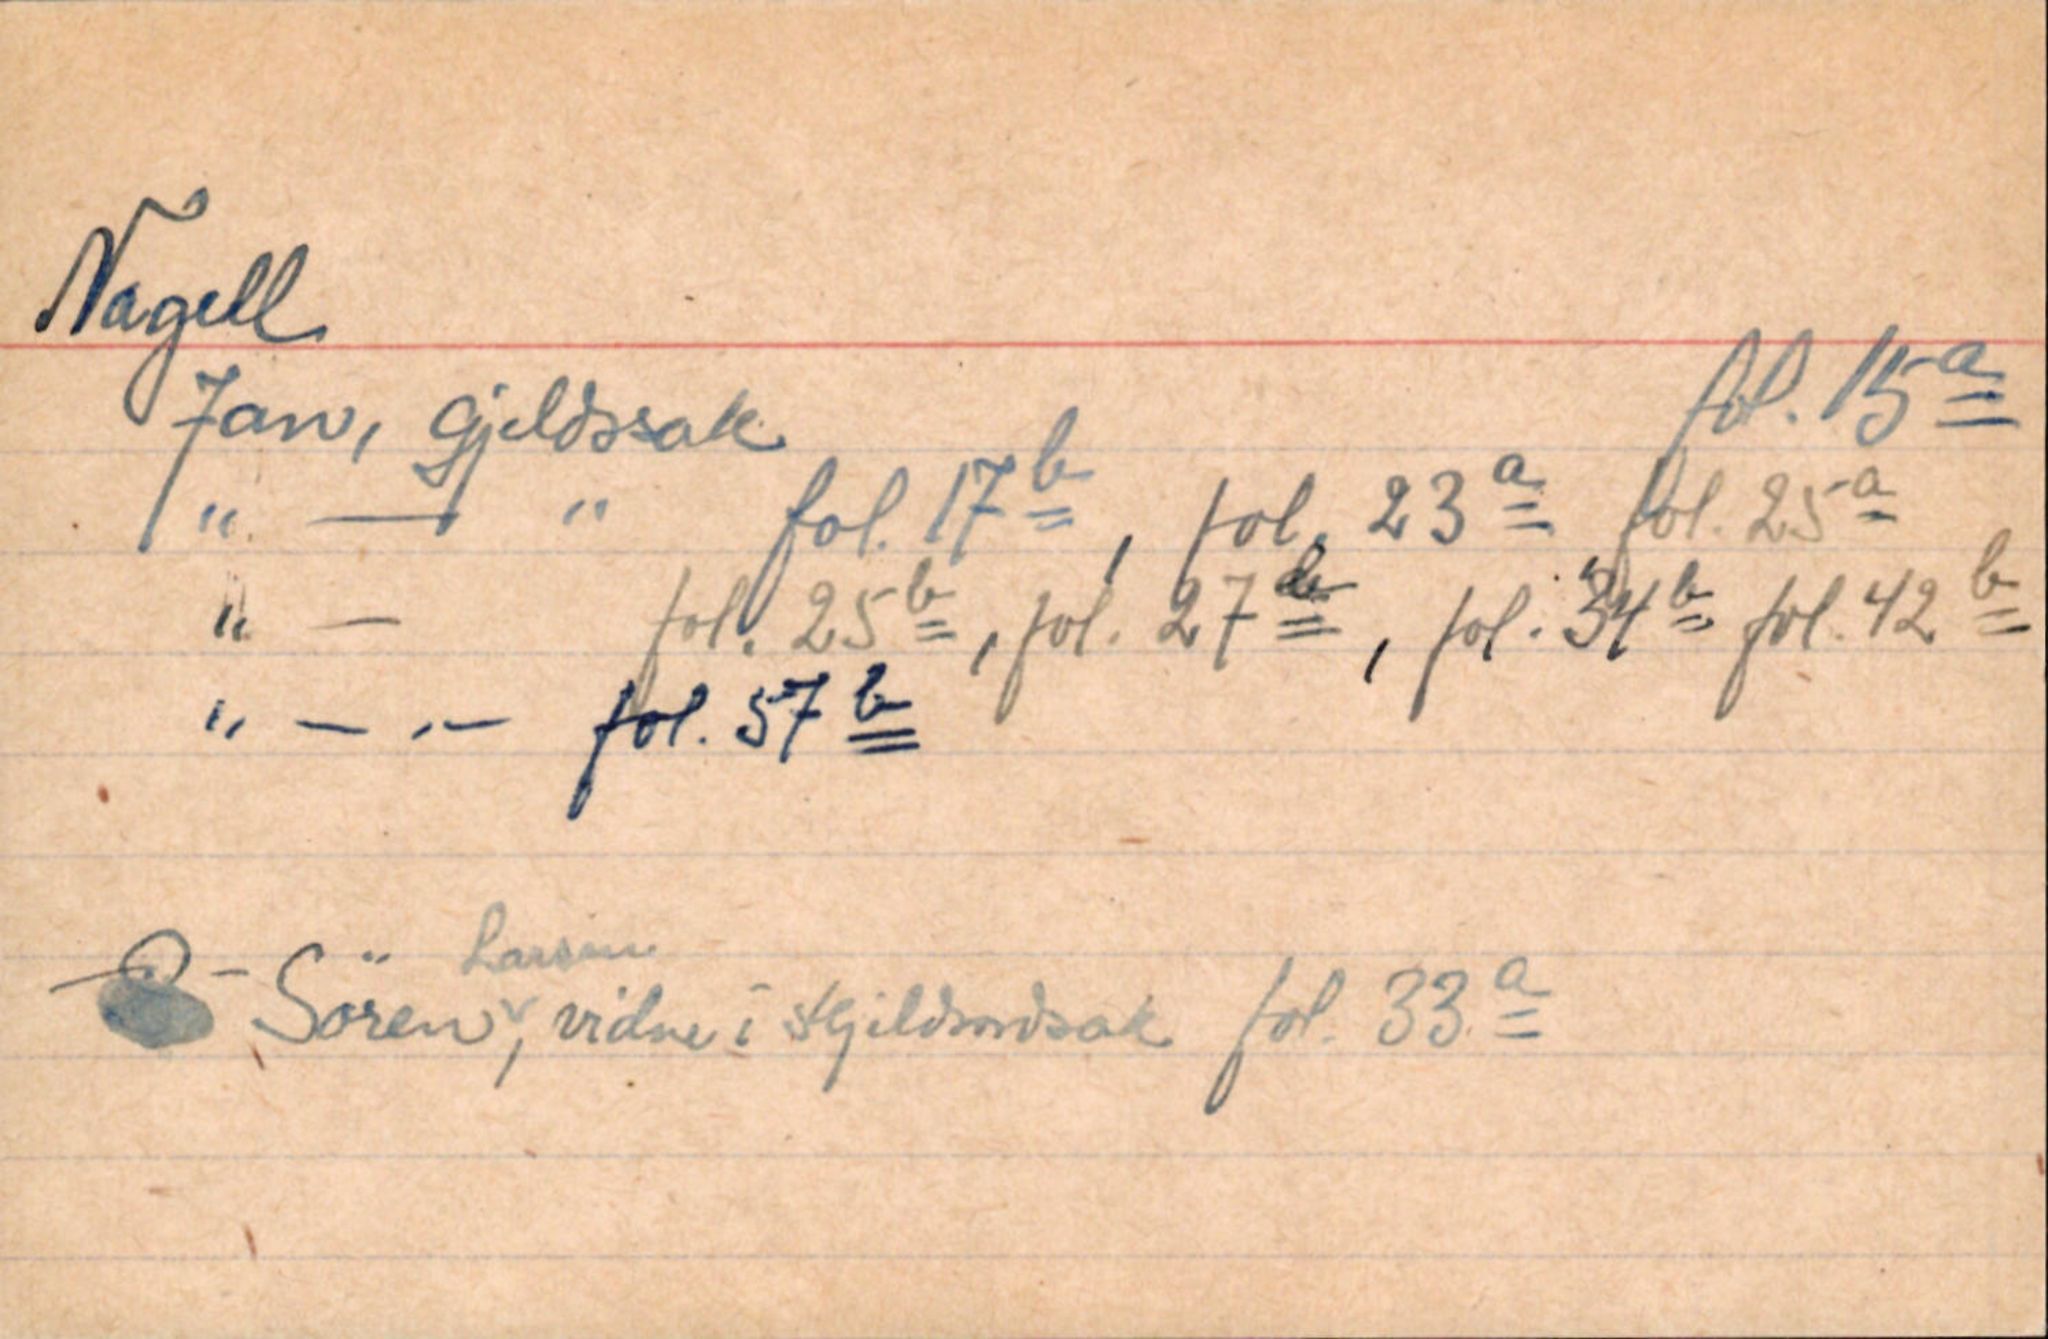 Nagell
Jan, Gjeldssak fol. 15a
" — " fol. 17b, fol. 23a fol. 25a
" — fol. 25b, fol. 27b, fol. 34b fol. 42b
" — " — fol. 57b
Larsen
- Sören, vidne i skjeldsordsak fol. 33a